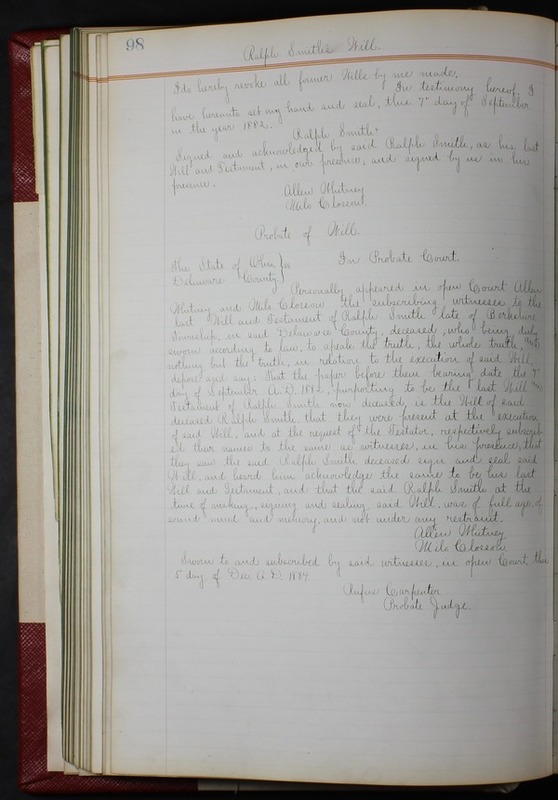 98
Ralph Smith's Will.
I do hereby revoke all former Wills by me made.
In testimony hereof, I
have hereunto set my hand and seal, this 7" day of September
in the year 1882.
Ralph Smith
Signed and acknowledged by said Ralph Smith, as his last
Will and Testament, in our presence, and signed by us in his
presence.
Allen Whitney
Milo Closson.
Probate of Will.
The State of Ohio } ss In Probate Court.
Delaware County }
Personally appeared in open Court Allen
Whitney and Milo Closson the subscribing witnesses to the
last Will and Testament of Ralph Smith late of Berkshire
Township, in said Delaware County, deceased, who being duly
sworn according to law, to speak the truth, the whole truth and
nothing but the truth, in relation to the execution of said Will,
depose and say: That the paper before them bearing date the 7"
day of September A.D. 1882, purporting to be the last Will and
Testament of Ralph Smith now deceased, is the Will of said
deceased Ralph Smith, that they were present at the execution
of said Will, and at the request of the Testator, respectively subscrib
ed their names to the same as witnesses, in his presence, that
they saw the said Ralph Smith deceased sign and seal said
Will, and heard him acknowledge the same to be his last
Will and Testament, and that the said Ralph Smith at the
time of making, signing and sealing said Will, was of full age, of
sound mind and memory, and not under any restraint.
Allen Whitney
Milo Closson
Sworn to and subscribed by said witnesses, in open Court, this
5 day of Dec A.D. 1884.
Rufus Carpenter
Probate Judge.